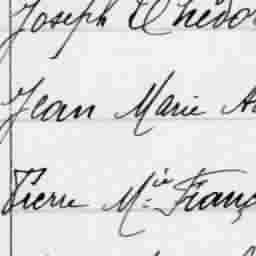 Joseph
Jean Marie
Pierre M.ie Franç